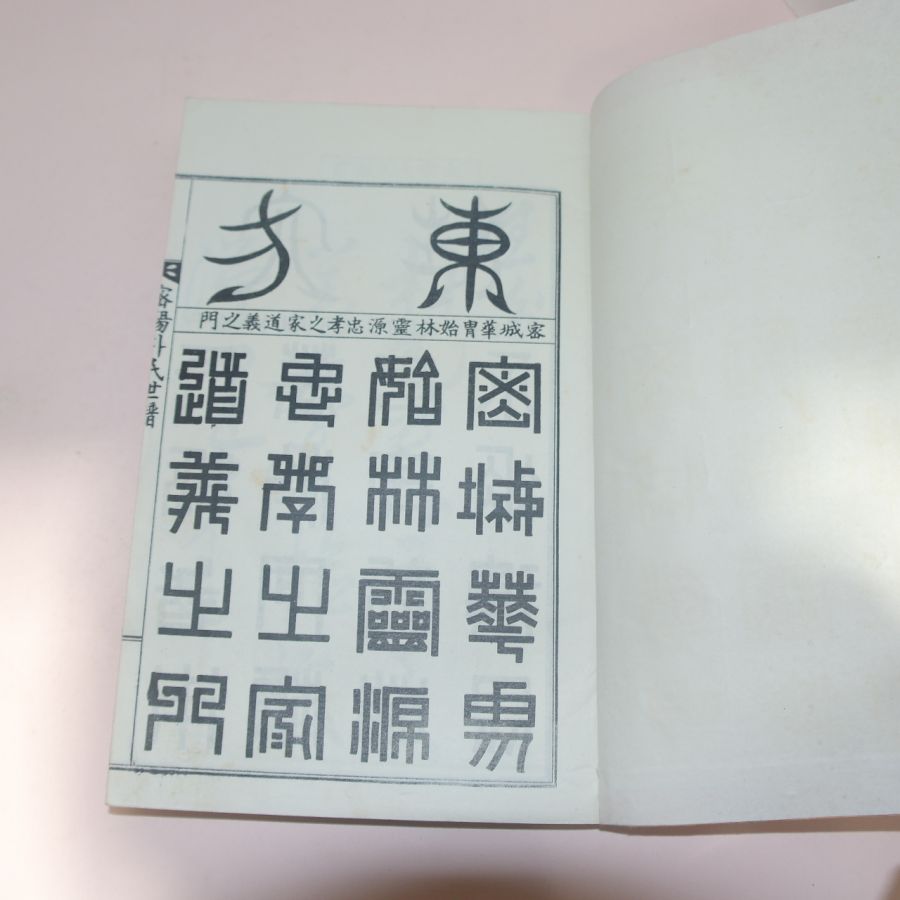 東方
密城華胄始林靈源忠孝之家道義之門
密城華胄
始林靈源
忠孝之家
道義之門
密陽朴氏世譜